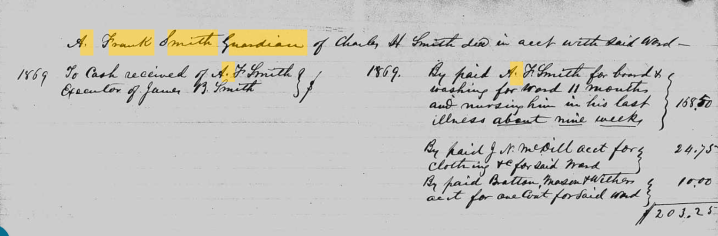 A. Frank Smith Guardian of Charles H Smith decd in acct with said Ward —
1869 To Cash received of A. F. Smith
Executor of James B. Smith
1869. By paid A. F. Smith for board &
washing for Ward 11 months
and nursing him in his last
illness about nine weeks 168.50
By paid J. N. McDill acct for
clothing &c for said Ward 24.75
By paid Bratton, Mason & Withers
acct for one Coat for Said Ward 10.00
$203.25